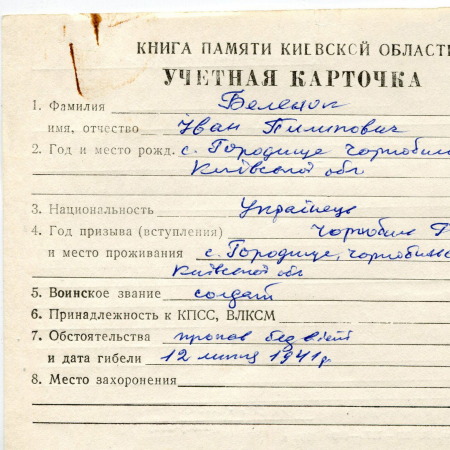 КНИГА ПАМЯТИ КИЕВСКОЙ ОБЛАСТИ
УЧЕТНАЯ КАРТОЧКА
1. Фамилия Беленок
имя, отчество Іван Пилипович
2. Год и место рожд. с. Городище Чорнобил
Київської обл
3. Национальность Українець
4. Год призыва (вступления) Чорнобил Р
и место проживания с. Городище, Чорнобил
Київської обл
5. Воинское звание солдат
6. Принадлежность к КПСС, ВЛКСМ
7. Обстоятельства пропав безвісті
и дата гибели 12 липня 1941р
8. Место захоронения